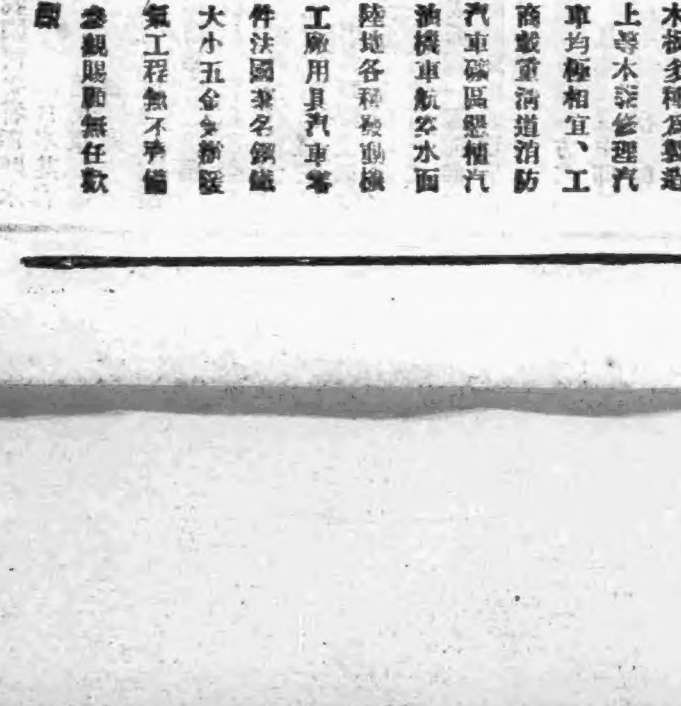 木板多種為製造
上等木器修理汽
車均極相宜、工
商載重清道消防
汽車礦區墾植汽
油機車航空水面
陸地各種發動機
工廠用具汽車零
件法國著名鋼鐵
大小五金
氣工程無不齊備
參觀賜顧無任歡